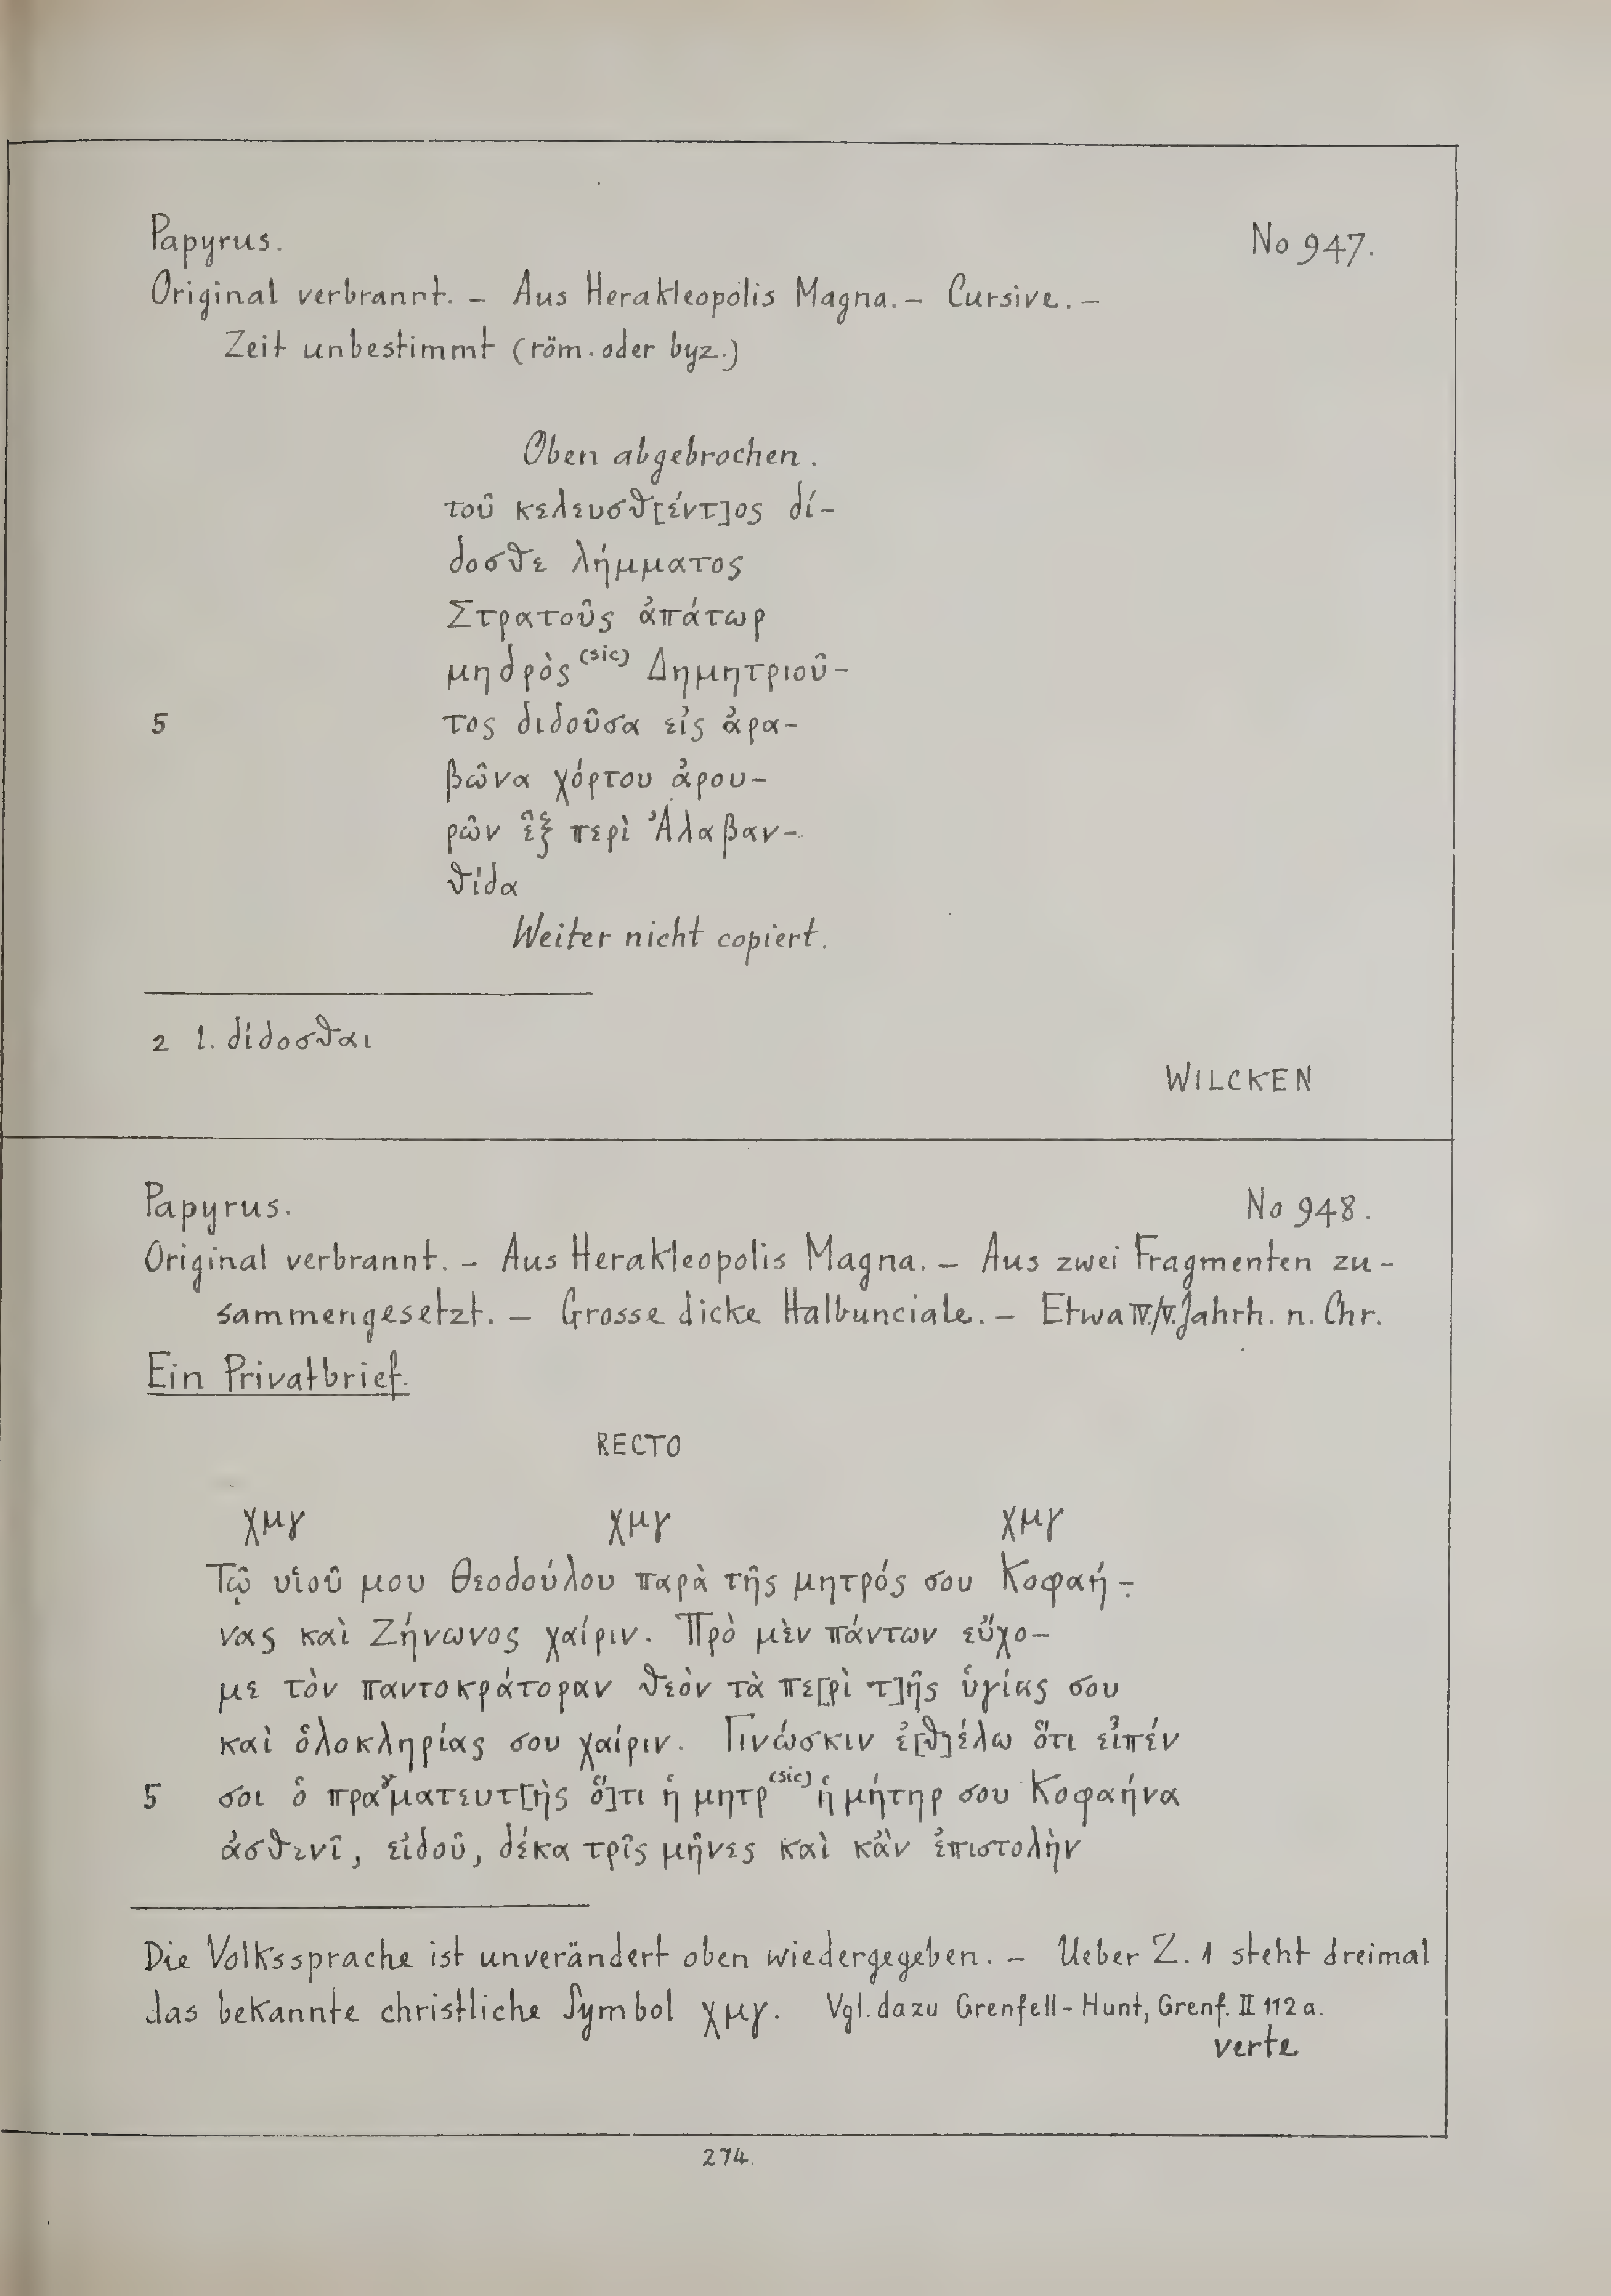 Papyrus. No 947.
Original verbrannt. – Aus Herakleopolis Magna. – Cursive. –
Zeit unbestimmt (röm. oder byz.)
Oben abgebrochen.
τοῦ κελευσθ[έντ]ος δί-
δοσθε λήμματος
Στρατοῦς ἀπάτωρ
μηδρὸς (sic) Δημητριοῦ-
5 τος διδοῦσα εἰς ἀρα-
βῶνα χόρτου ἀρου-
ρῶν ἓξ περὶ Ἀλαβαν-
θίδα
Weiter nicht copiert.
2 l. δίδοσθαι
WILCKEN
Papyrus. No 948.
Original verbrannt. – Aus Herakleopolis Magna. – Aus zwei Fragmenten zu-
sammengesetzt. – Grosse dicke Halbunciale. – Etwa IV./V. Jahrh. n. Chr.
Ein Privatbrief.
RECTO
χμγ χμγ χμγ
Τῷ υἱοῦ μου Θεοδούλου παρὰ τῆς μητρός σου Κοφαή-
νας καὶ Ζήνωνος χαίριν. Πρὸ μὲν πάντων εὔχο-
με τὸν παντοκράτοραν θεὸν τὰ πε[ρὶ τ]ῆς ὑγίας σου
καὶ ὁλοκληρίας σου χαίριν. Γινώσκιν ἐ[θ]έλω ὅτι εἶπέν
5 σοι ὁ πραγματευτ[ὴς ὅ]τι ἡ μητρ (sic) ἡ μήτηρ σου Κοφαήνα
ἀσθενῖ, εἰδοῦ, δέκα τρῖς μῆνες καὶ κἂν ἐπιστολὴν
Die Volkssprache ist unverändert oben wiedergegeben. – Ueber Z. 1 steht dreimal
das bekannte christliche Symbol χμγ. Vgl. dazu Grenfell-Hunt, Grenf. II 112 a.
verte
274.